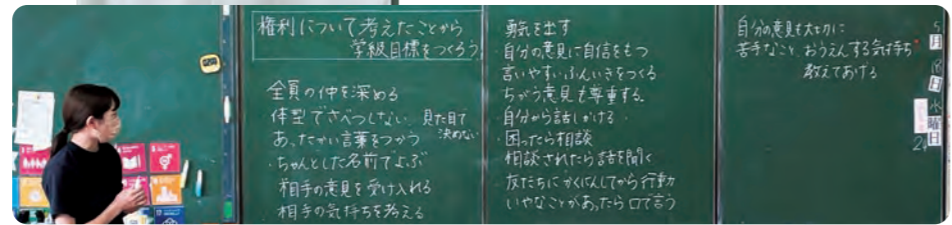 権利について考えたことから
学級目標をつくろう
全員の仲を深める
体型でさべつしない 見た目で
決めない
あったかい言葉をつかう
・ちゃんとした名前でよぶ
相手の意見を受け入れる
・相手の気持ちを考える
勇気を出す
・自分の意見に自信をもつ
言いやすいふんいきをつくる
ちがう意見も尊重する。
・自分から話しかける
・困ったら相談
・相談されたら話を聞く
・友だちにかくにんしてから行動
・いやなことがあったら口で言う
自分の意見も大切に
苦手なこと おうえんする気持ち
教えてあげる
5
月
日
水
曜
日